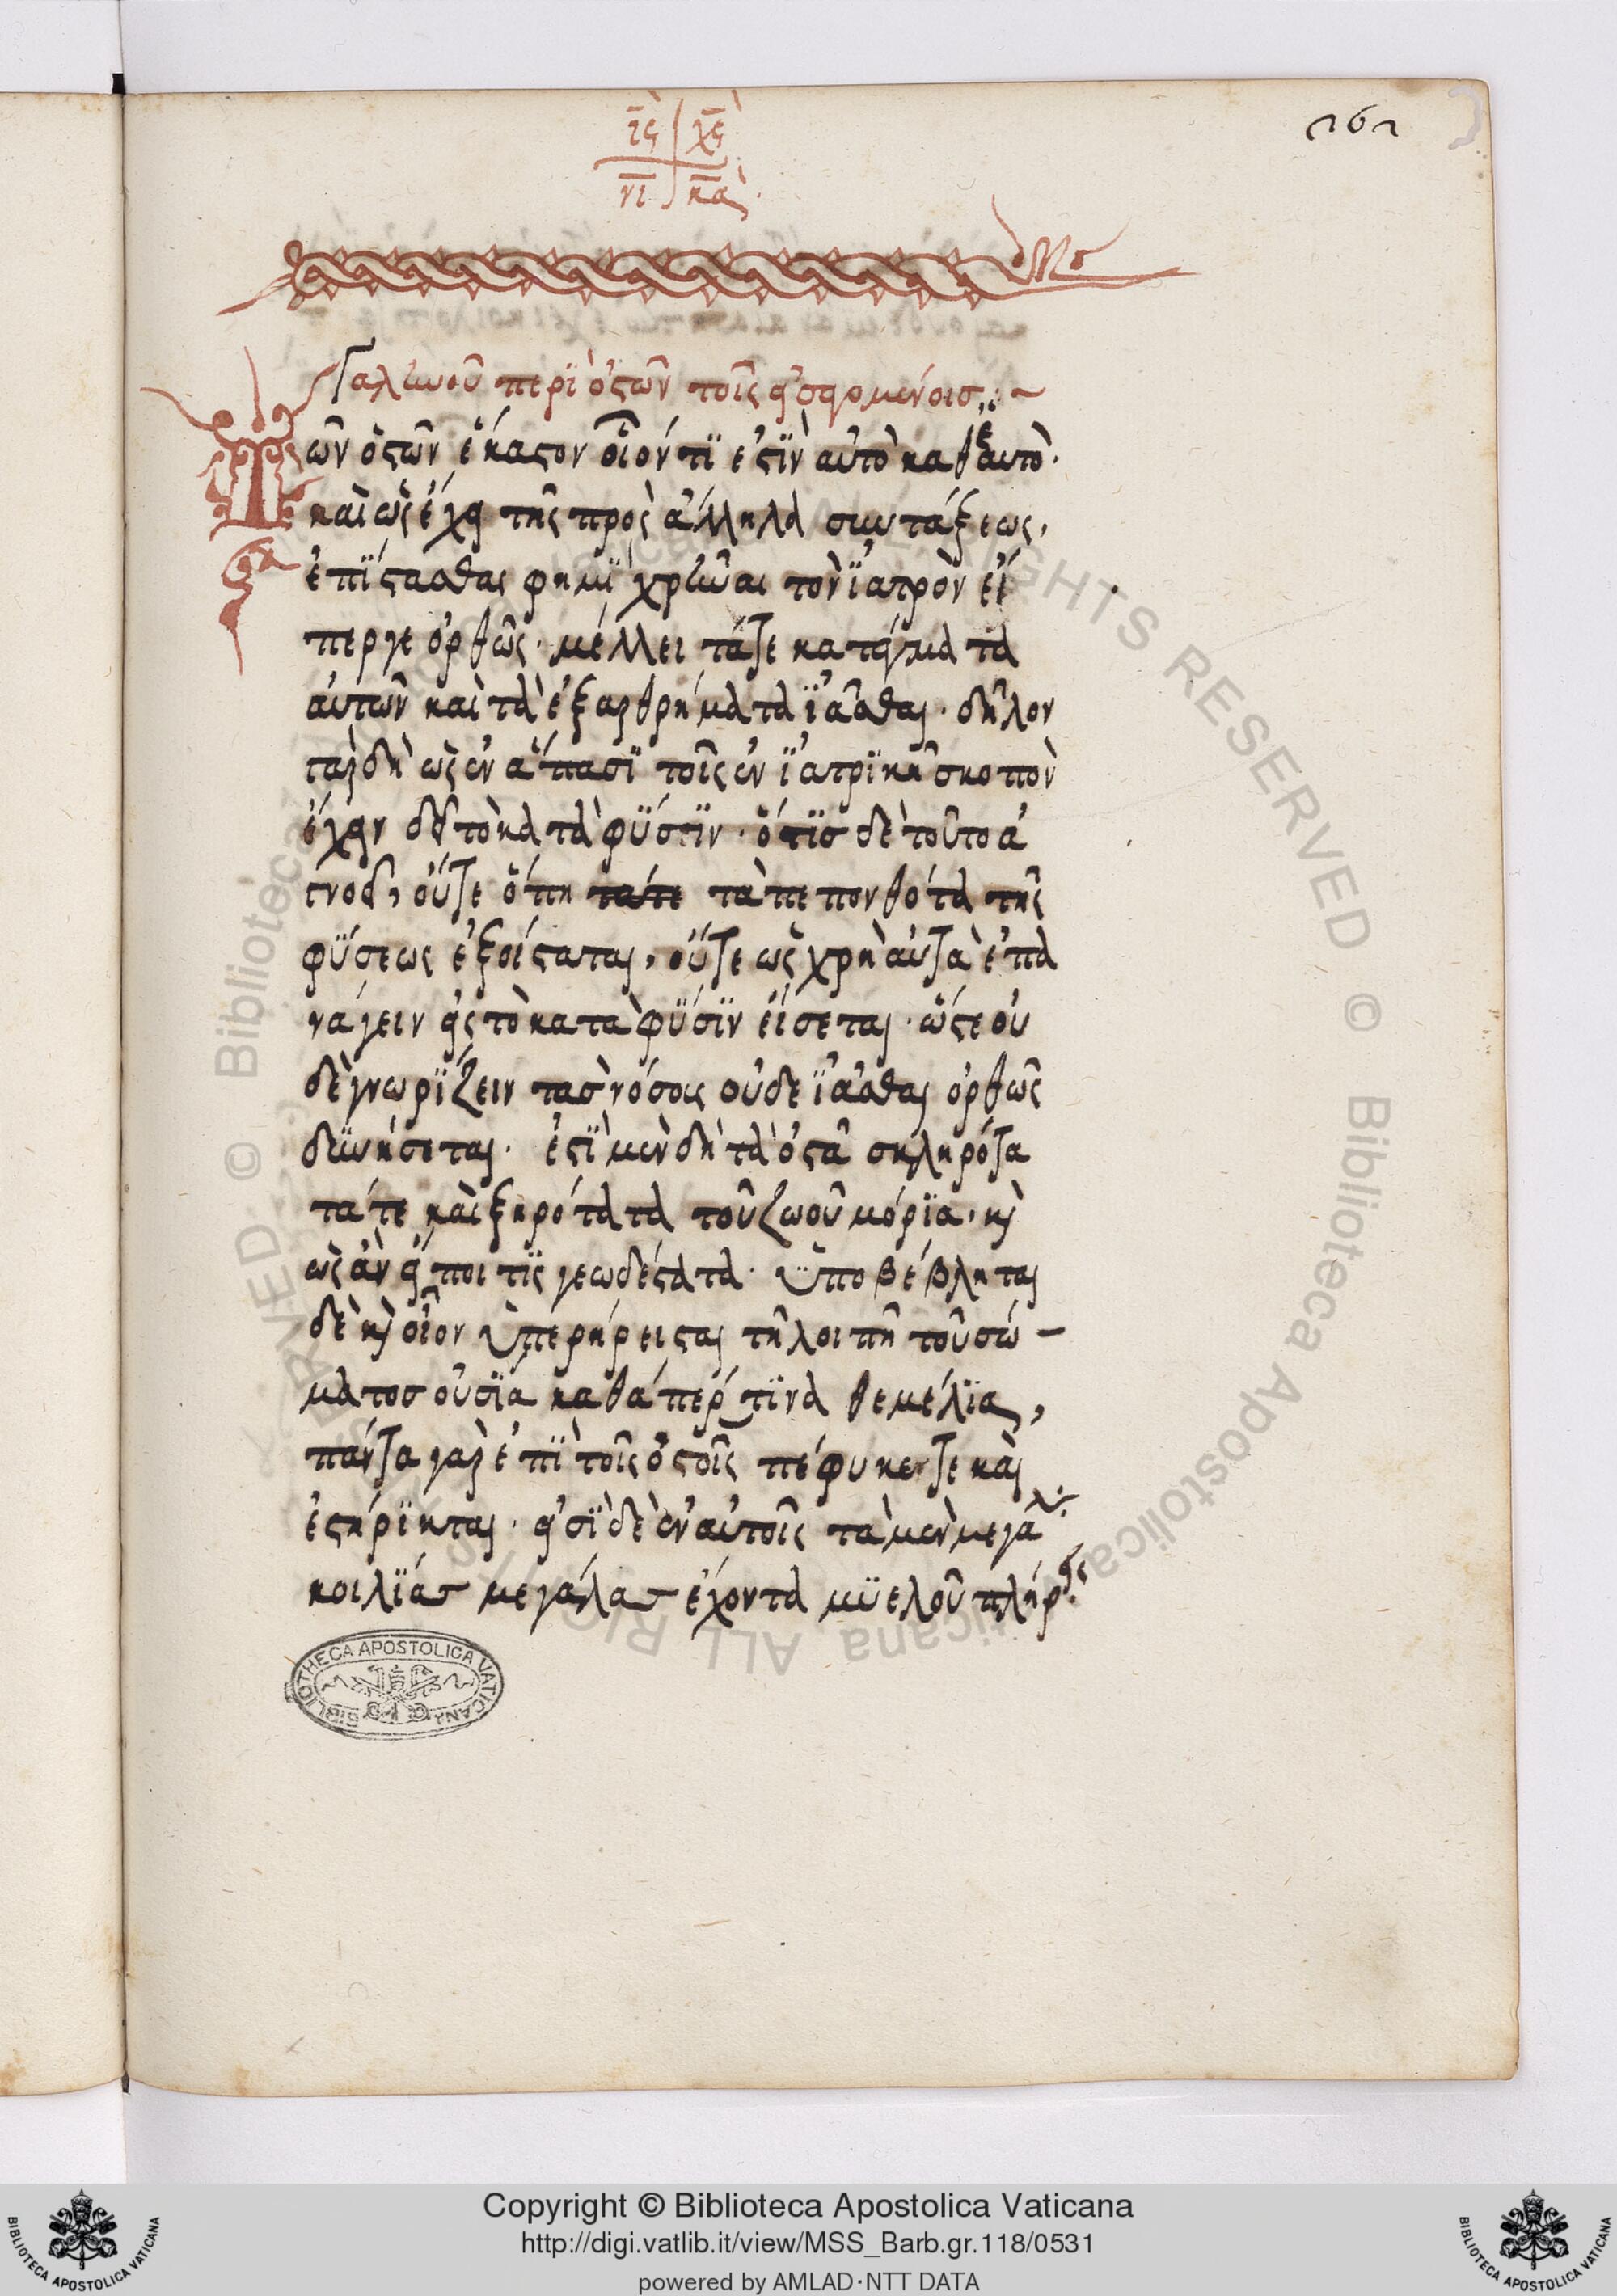 ις χς
νι κα
261
Γαληνοῦ περὶ ὀστῶν τοῖς εἰσαγομένοις
Τῶν ὀστῶν ἕκαστον οἷόν τί ἐστιν αὐτὸ καθ' ἑαυτὸ·
καὶ ὡς ἔχει τῆς πρὸς ἄλληλα συντάξεως,
ἐπίστασθαι φημὶ χρῆναι τὸν ἰατρὸν εἴ
περ γε ὀρθῶς· μέλλει τά τε κατάγματα
αὐτῶν καὶ τὰ ἐξαρθρήματα ἰᾶσθαι· δῆλον
γὰρ δὴ ὡς ἐν ἅπασι τοῖς ἐν ἰατρικῇ σκοπὸν
ἔχειν δεῖ τὸ κατὰ φύσιν· ὅστις δὲ τοῦτο ἀ
γνοεῖ, οὔτε ὅπη τὰ πεπονθότα τῆς
φύσεως ἐξίσταται, οὔτε ὡς χρὴ αὐτὰ ἐπα
νάγειν εἰς τὸ κατὰ φύσιν εἴσεται· ὥστε οὐ
δὲ γνωρίζειν τὰς νόσους οὐδὲ ἰᾶσθαι ὀρθῶς
δυνήσεται· ἐστὶ μὲν δὴ τὰ ὀστᾶ σκληρότα
τά τε καὶ ξηρότατα τοῦ ζώου μόρια, καὶ
ὡς ἂν εἴποι τις γεωδέστατα· ὑποβέβληται
δὲ καὶ οἷον ὑπερήρεισται τῇ λοιπῇ τοῦ σώ-
ματος οὐσία καθάπερ τινὰ θεμέλια,
πάντα γὰρ ἐπὶ τοῖς ὀστοῖς πέφυκέν τε καὶ
ἐστήρικται· εἰσὶ δὲ ἐν αὐτοῖς τὰ μὲν μεγάλ
κοιλίας μεγάλας ἔχοντα μυελοῦ πλήρεις
BIBLIOTHECA APOSTOLICA VATICANA
© Biblioteca Apostolica Vaticana ALL RIGHTS RESERVED
Copyright © Biblioteca Apostolica Vaticana
http://digi.vatlib.it/view/MSS_Barb.gr.118/0531
powered by AMLAD·NTT DATA
BIBLIOTECA APOSTOLICA VATICANA
BIBLIOTECA APOSTOLICA VATICANA